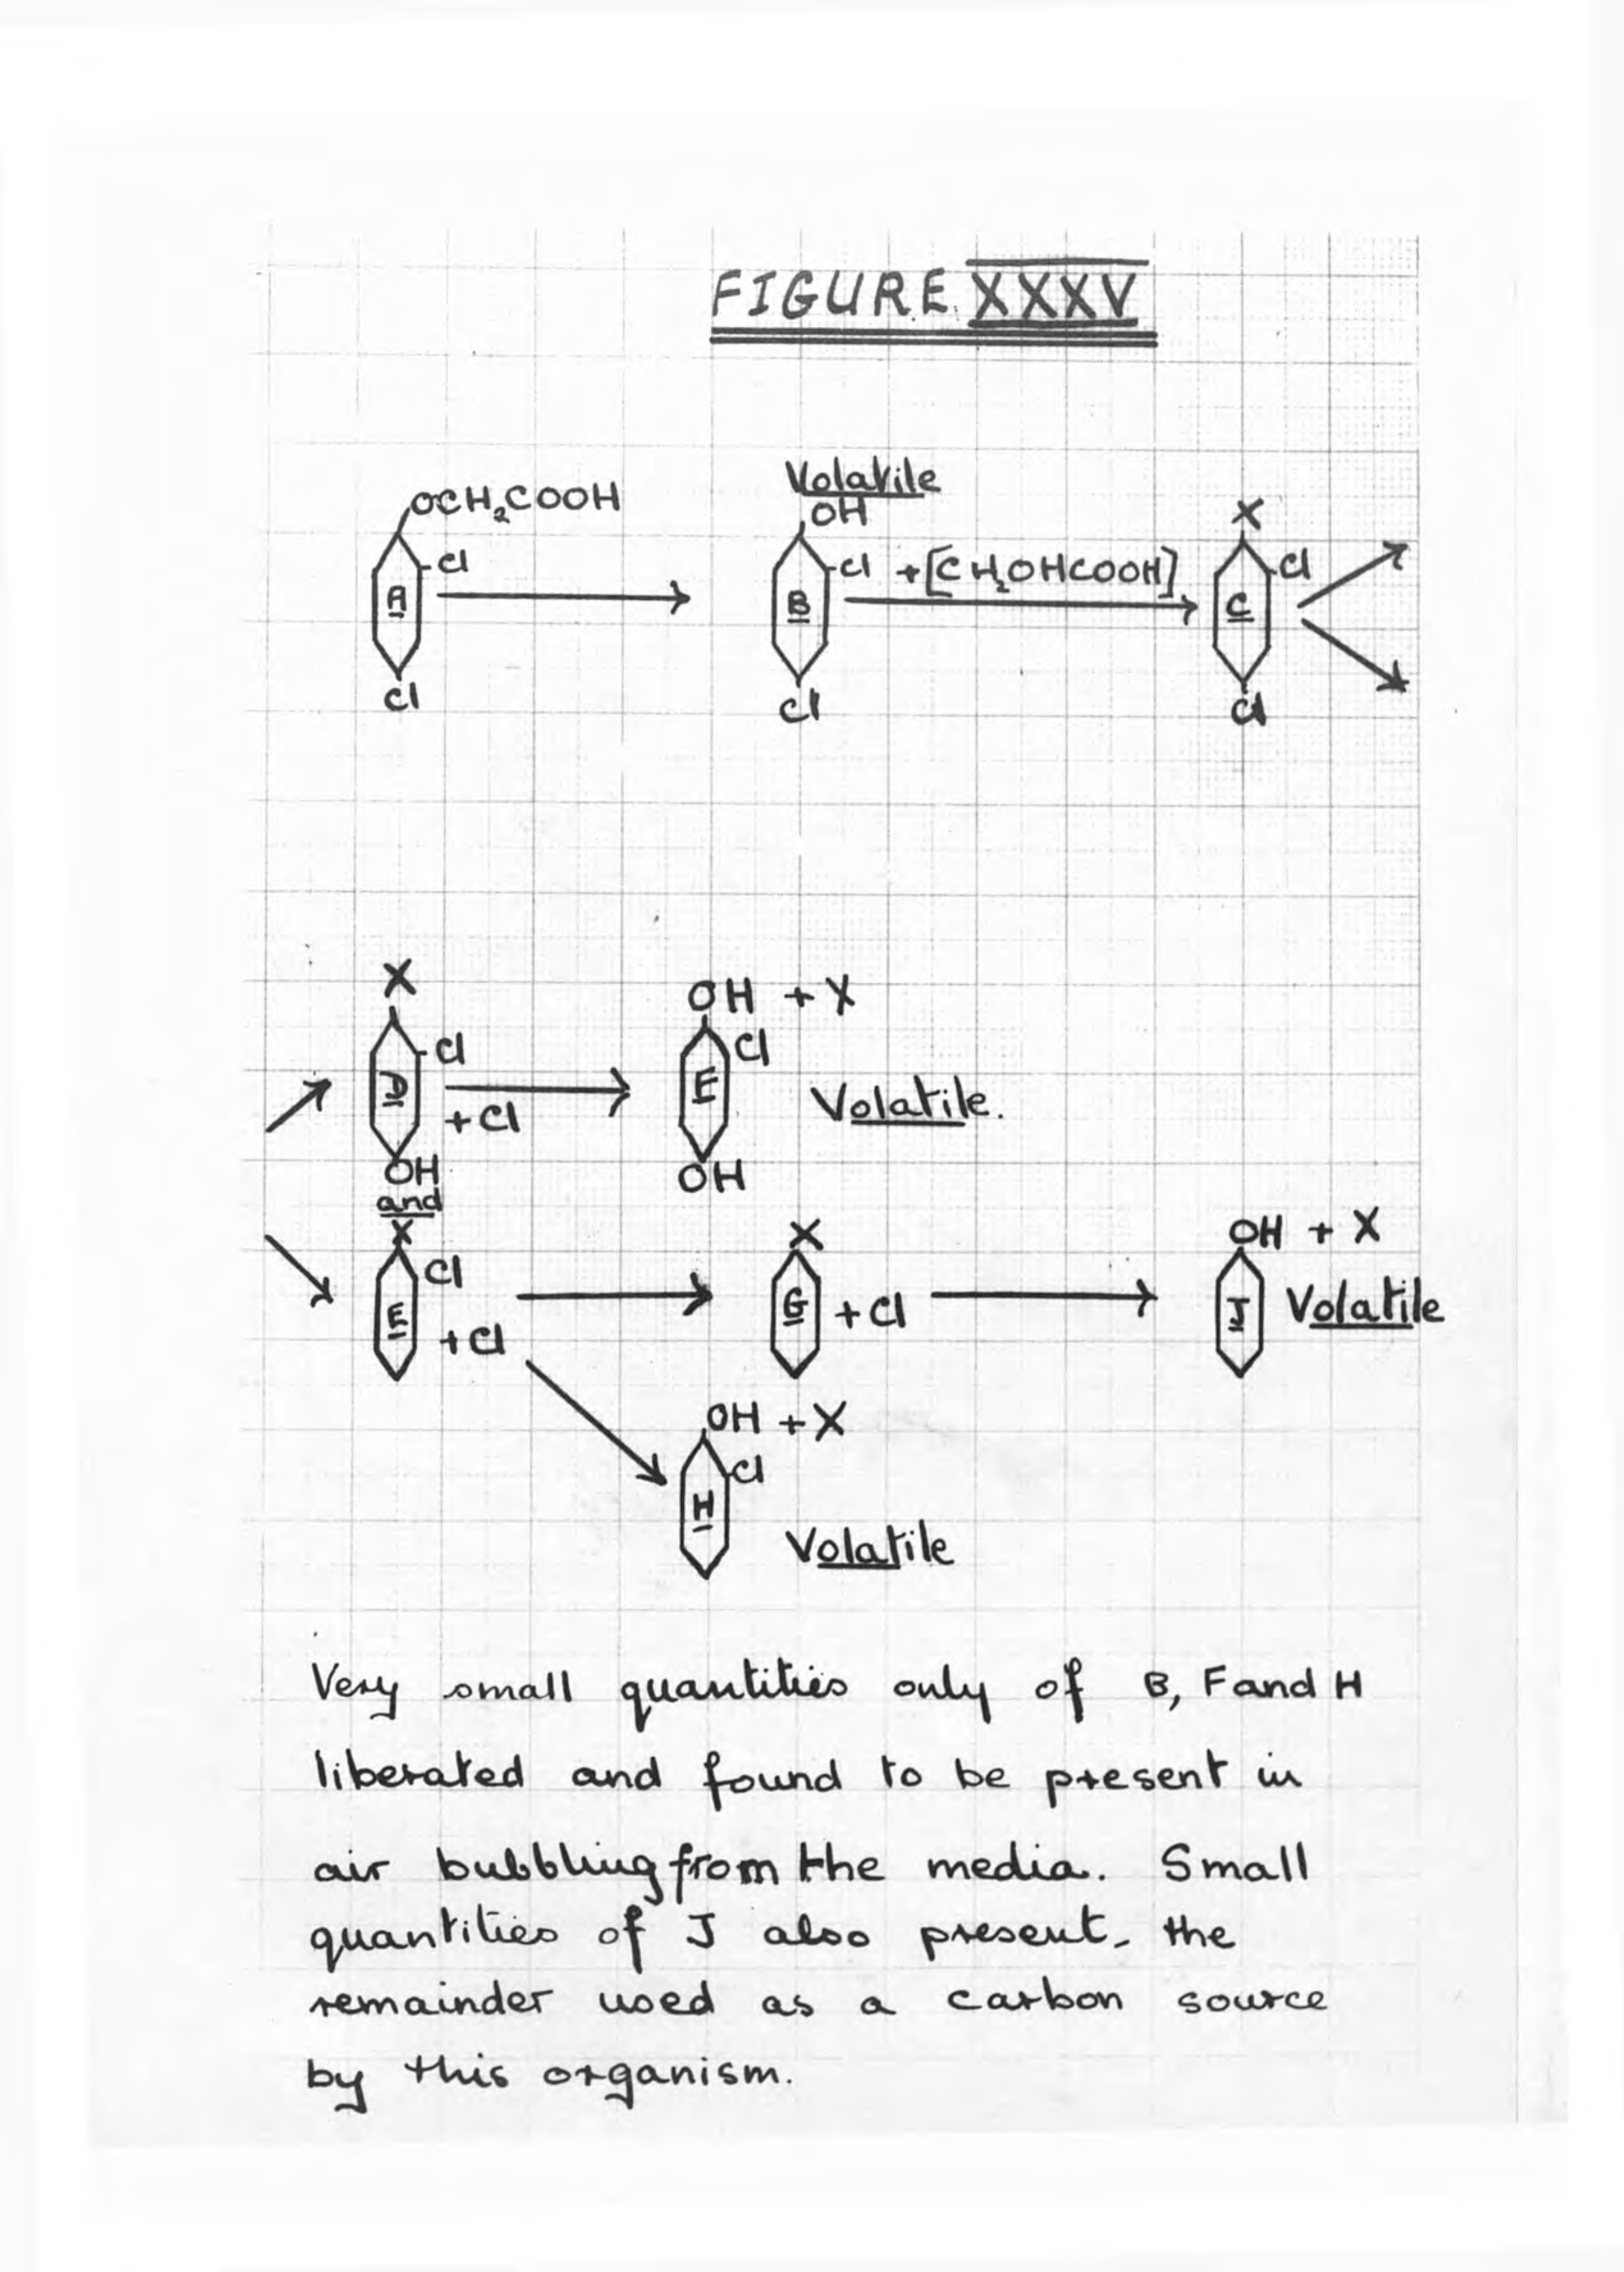 FIGURE XXXV
Volatile
OCH₂COOH
OH
X
Cl
Cl + [CH₂OHCOOH]
Cl
A
B
C
Cl
Cl
Cl
X
OH + X
Cl
Cl
D
F
Volatile.
+ Cl
OH
OH
and
X
X
OH + X
Cl
E
G
+ Cl
J
Volatile
+ Cl
OH + X
Cl
H
Volatile
Very small quantities only of B, F and H
liberated and found to be present in
air bubbling from the media. Small
quantities of J also present, the
remainder used as a carbon source
by this organism.